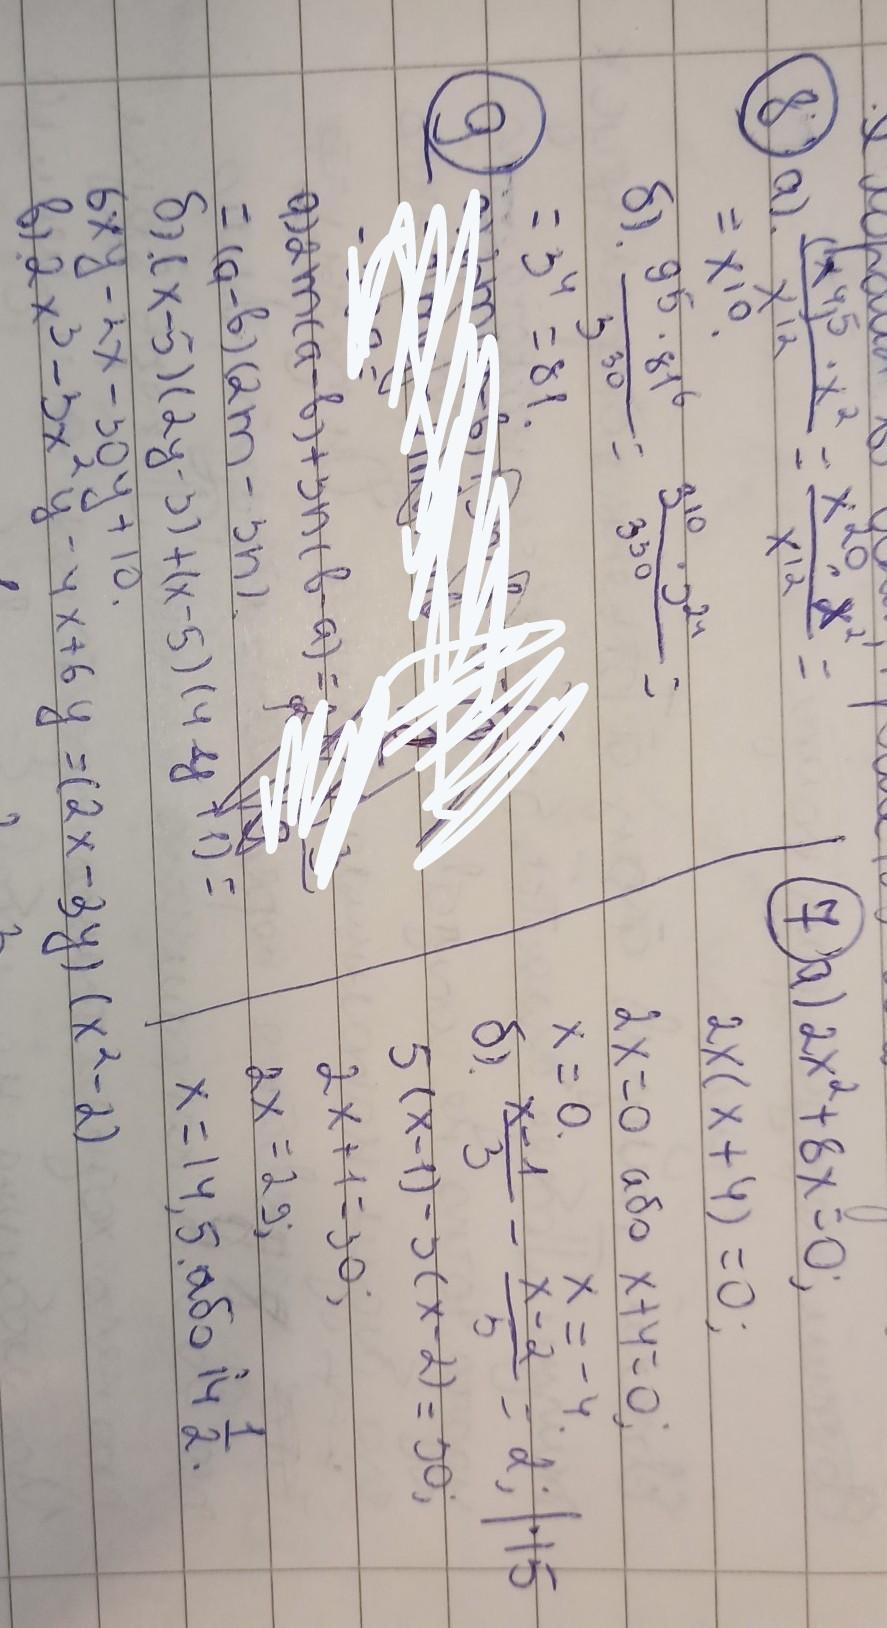 8) а). (x⁴)⁵ · x² / x¹² = x²⁰ · x² / x¹² =
= x¹⁰.
б). 9⁵ · 81⁶ / 3³⁰ = 3¹⁰ · 3²⁴ / 3³⁰ =
= 3⁴ = 81.
9)
а) 2m(a-b)+3n(b-a)=
=(a-b)(2m-3n).
б).(x-5)(2y-3)+(x-5)(4y+1)=
6xy-2x-30y+10.
в).2x³-3x²y-4x+6y=(2x-3y)(x²-2)
7) а) 2x²+8x=0;
2x(x+4)=0;
2x=0 або x+4=0;
x=0. x=-4.
б). x-1 / 3 - x-2 / 5 = 2; |·15
5(x-1)-3(x-2)=30;
2x+1=30;
2x=29;
x=14,5. або 14 1/2.